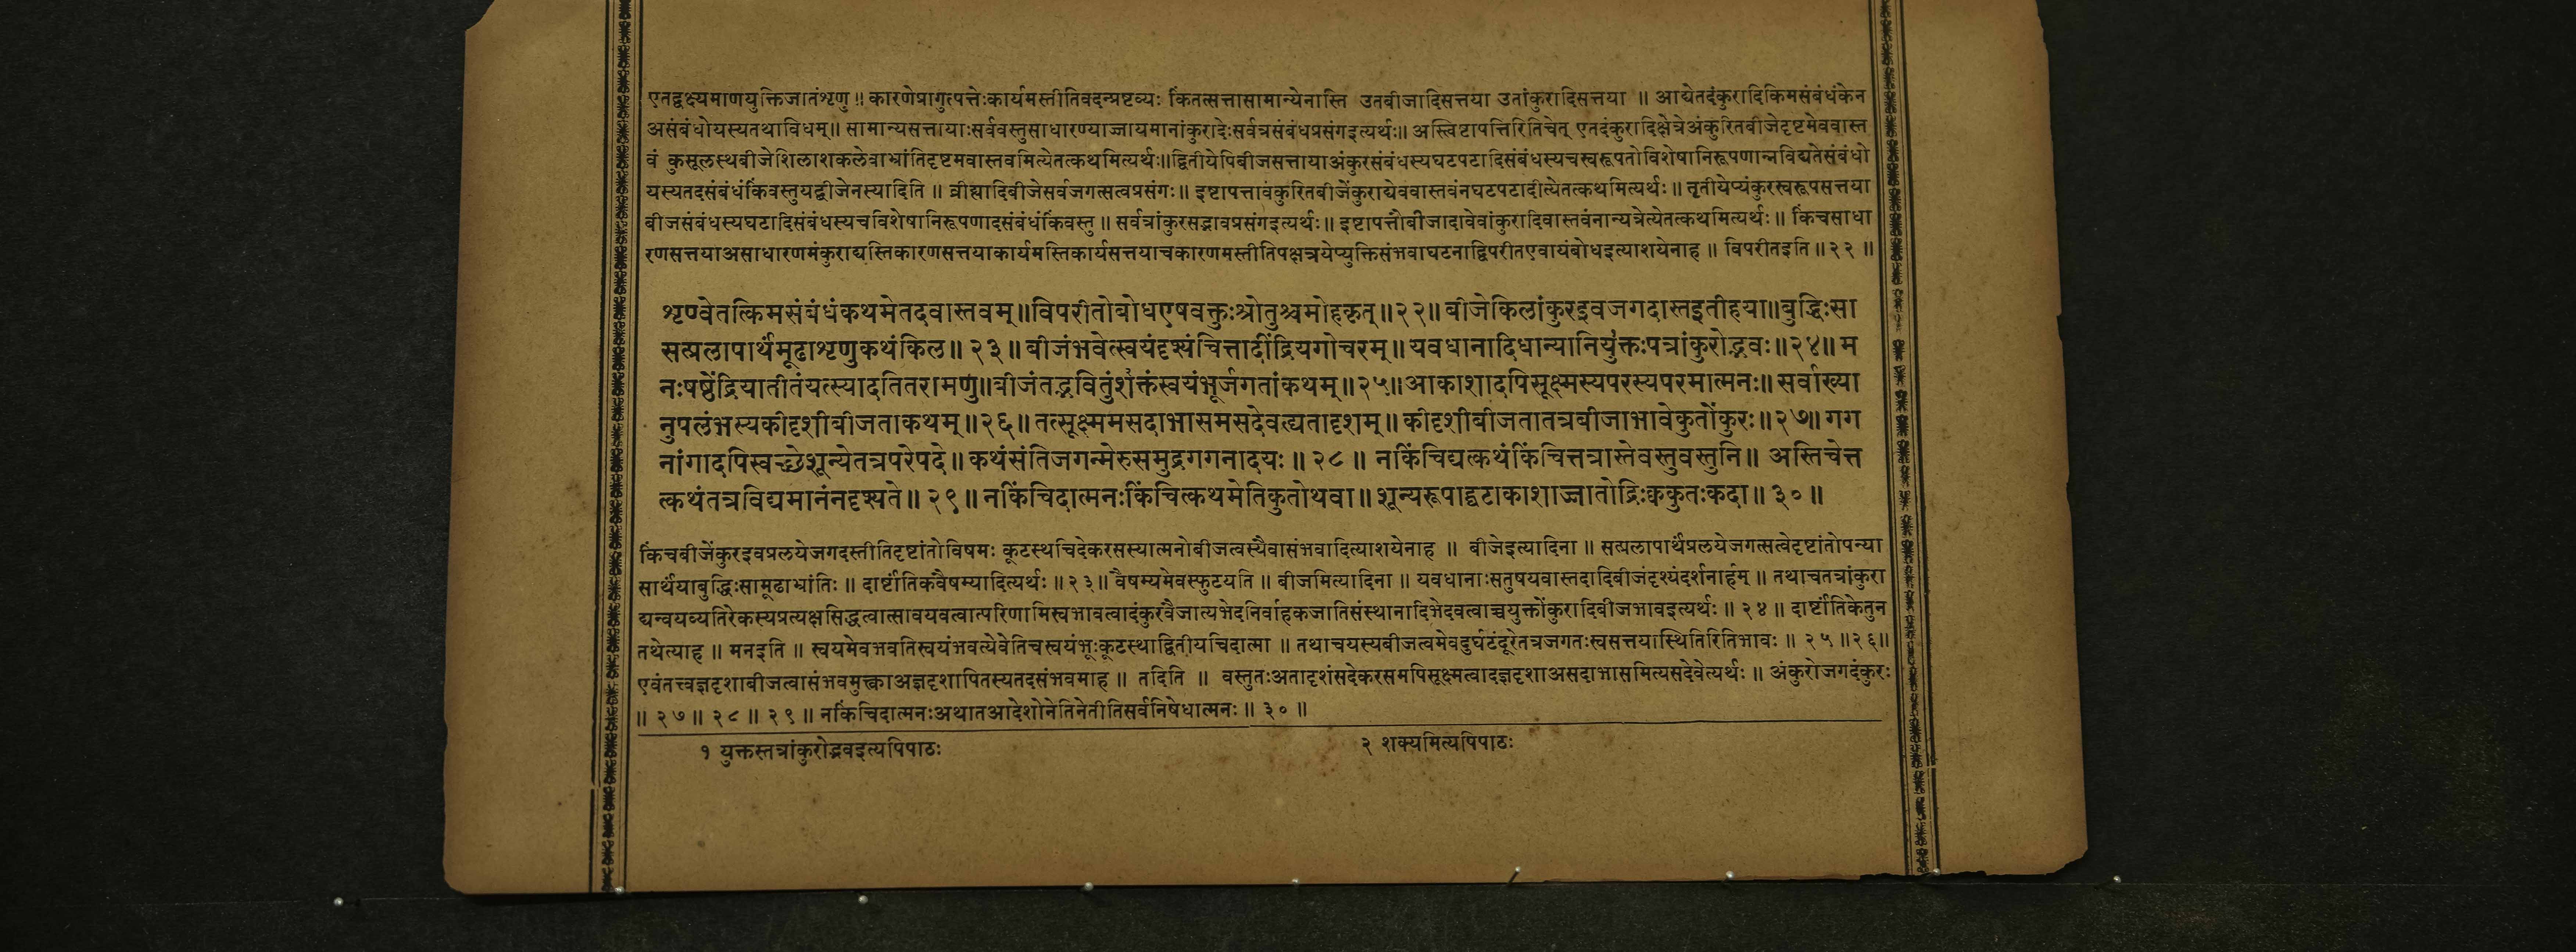 एतद्वक्ष्यमाणयुक्तिजातंशृणु ॥ कारणेप्रागुत्पत्तेःकार्यमस्तीतिवदन्प्रष्टव्यः किंतत्सत्तासामान्येनास्ति उतबीजादिसत्तया उतांकुरादिसत्तया ॥ आद्येतदंकुरादिकिमसंबंधंकेन
असंबंधोयस्यतथाविधम्॥ सामान्यसत्तायाःसर्ववस्तुसाधारण्याज्जायमानांकुरादेःसर्वत्रसंबंधप्रसंगइत्यर्थः॥ अस्त्विष्टापत्तिरितिचेत् एतदंकुरादिक्षेत्रेअंकुरितबीजेदृष्टमेववास्त
वं कुसूलस्थबीजेशिलाशकलेवाभ्रांतिदृष्टमवास्तवमित्येतत्कथमित्यर्थः॥द्वितीयेपिबीजसत्तायाअंकुरसंबंधस्यघटपटादिसंबंधस्यचस्वरूपतोविशेषानिरूपणान्नविद्यतेसंबंधो
यस्यतदसंबंधंकिंवस्तुयद्बीजेनस्यादिति ॥ व्रीह्यादिबीजेसर्वजगत्सत्वप्रसंगः॥ इष्टापत्तावंकुरितबीजेंकुराद्येववास्तवंनघटपटादीत्येतत्कथमित्यर्थः॥ तृतीयेप्यंकुरस्वरूपसत्तया
बीजसंबंधस्यघटादिसंबंधस्यचविशेषानिरूपणादसंबंधंकिंवस्तु॥ सर्वत्रांकुरसद्भावप्रसंगइत्यर्थः॥ इष्टापत्तौबीजादावेवांकुरादिवास्तवंनान्यत्रेत्येतत्कथमित्यर्थः॥ किंचसाधा
रणसत्तयाअसाधारणमंकुराद्यस्तिकारणसत्तयाकार्यमस्तिकार्यसत्तयाचकारणमस्तीतिपक्षत्रयेप्युक्तिसंभवाघटनाद्विपरीतएवायंबोधइत्याशयेनाह ॥ विपरीतइति॥२२॥
शृण्वेतत्किमसंबंधंकथमेतदवास्तवम्॥विपरीतोबोधएषवक्तुःश्रोतुश्चमोहकृत्॥२२॥बीजेकिलांकुरइवजगदास्तइतीहया॥बुद्धिःसा
सत्प्रलापार्थंमूढाशृणुकथंकिल॥२३॥बीजंभवेत्स्वयंदृश्यंचित्तादींद्रियगोचरम्॥यवधानादिधान्यानियुक्तःपत्रांकुरोद्भवः॥२४॥म
नःषष्ठेंद्रियातीतंयत्स्यादतितरामणु॥बीजंतद्भवितुंशक्तंस्वयंभूर्जगतांकथम्॥२५॥आकाशादपिसूक्ष्मस्यपरस्यपरमात्मनः॥सर्वाख्या
नुपलंभस्यकीदृशीबीजताकथम्॥२६॥तत्सूक्ष्ममसदाभासमसदेवत्द्यतादृशम्॥कीदृशीबीजतातत्रबीजाभावेकुतोंकुरः॥२७॥गग
नांगादपिस्वच्छेशून्येतत्रपरेपदे॥कथंसंतिजगन्मेरुसमुद्रगगनादयः॥२८॥ नकिंचिद्यत्कथंकिंचित्तत्रास्तेवस्तुवस्तुनि॥ अस्तिचेत्त
त्कथंतत्रविद्यमानंनदृश्यते॥२९॥नकिंचिदात्मनःकिंचित्कथमेतिकुतोथवा॥शून्यरूपाद्घटाकाशाज्जातोद्रिःक्वकुतःकदा॥३०॥
किंचबीजेंकुरइवप्रलयेजगदस्तीतिदृष्टांतोविषमः कूटस्थचिदेकरसस्यात्मनोबीजत्वस्यैवासंभवादित्याशयेनाह ॥ बीजेइत्यादिना॥ सत्प्रलापार्थंप्रलयेजगत्सत्वेदृष्टांतोपन्या
सार्थंयाबुद्धिःसामूढाभ्रांतिः॥ दार्ष्टांतिकवैषम्यादित्यर्थः॥२३॥वैषम्यमेवस्फुटयति॥बीजमित्यादिना॥ यवधानाःसतुषयवास्तदादिबीजंदृश्यंदर्शनार्हम्॥ तथाचतत्रांकुरा
द्यन्वयव्यतिरेकस्यप्रत्यक्षसिद्धत्वात्सावयवत्वात्परिणामिस्वभावत्वादंकुरवैजात्यभेदनिर्वाहकजातिसंस्थानादिभेदवत्वाच्चयुक्तोंकुरादिबीजभावइत्यर्थः॥२४॥ दार्ष्टांतिकेतुन
तथेत्याह॥ मनइति॥ स्वयमेवभवतिस्वयंभवत्येवेतिचस्वयंभूःकूटस्थाद्वितीयचिदात्मा॥ तथाचयस्यबीजत्वमेवदुर्घटंदूरेतत्रजगतःस्वसत्तयास्थितिरितिभावः॥२५॥२६॥
एवंतत्त्वज्ञदृशाबीजत्वासंभवमुक्त्वाअज्ञदृशापितस्यतदसंभवमाह॥ तदिति॥ वस्तुतःअतादृशंसदेकरसमपिसूक्ष्मत्वादज्ञदृशाअसदाभासमित्यसदेवेत्यर्थः॥ अंकुरोजगदंकुरः
॥२७॥२८॥२९॥नकिंचिदात्मनःअथातआदेशोनेतिनेतीतिसर्वनिषेधात्मनः॥३०॥
१ युक्तस्तत्रांकुरोद्भवइत्यपिपाठः २ शक्यमित्यपिपाठः